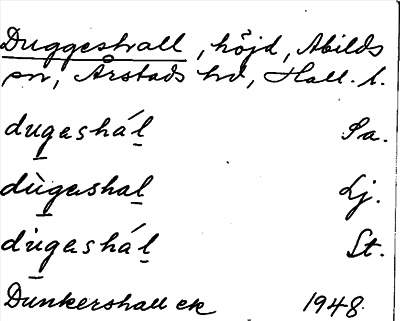 Duggeshall, höjd, Abilds
sn, Årstads hd, Hall. l.
dugashál Sa.
dùgashal Lj.
dùgashál St.
Dunkershall ek 1948.